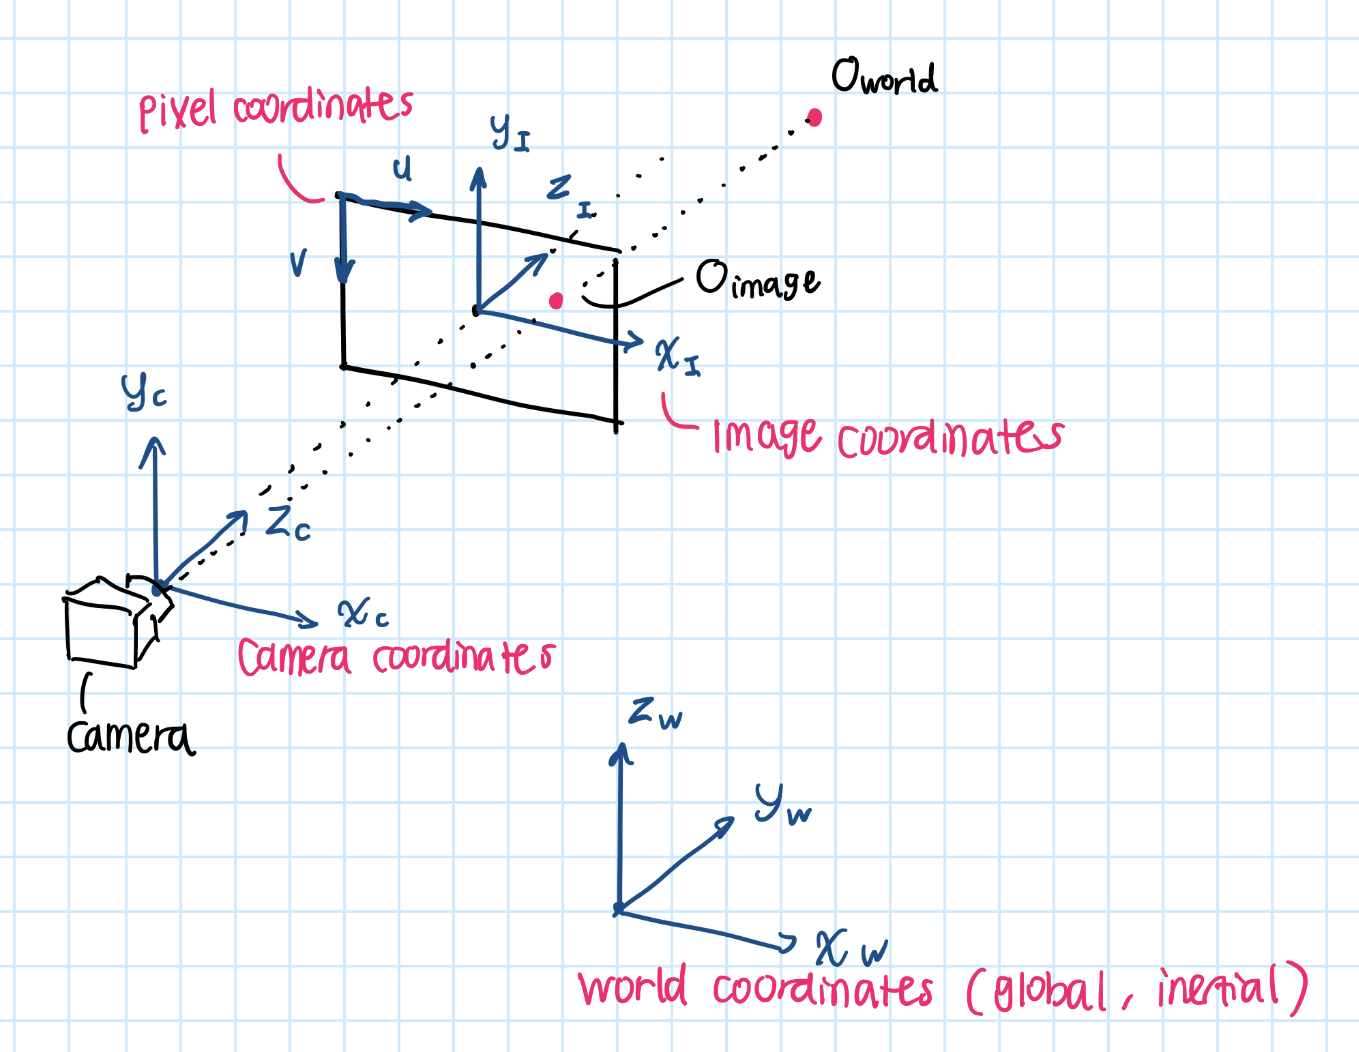 Oworld
pixel coordinates
yI
u
zI
v
Oimage
xI
yc
image coordinates
zc
xc
camera coordinates
camera
zw
yw
xw
world coordinates (global, inertial)